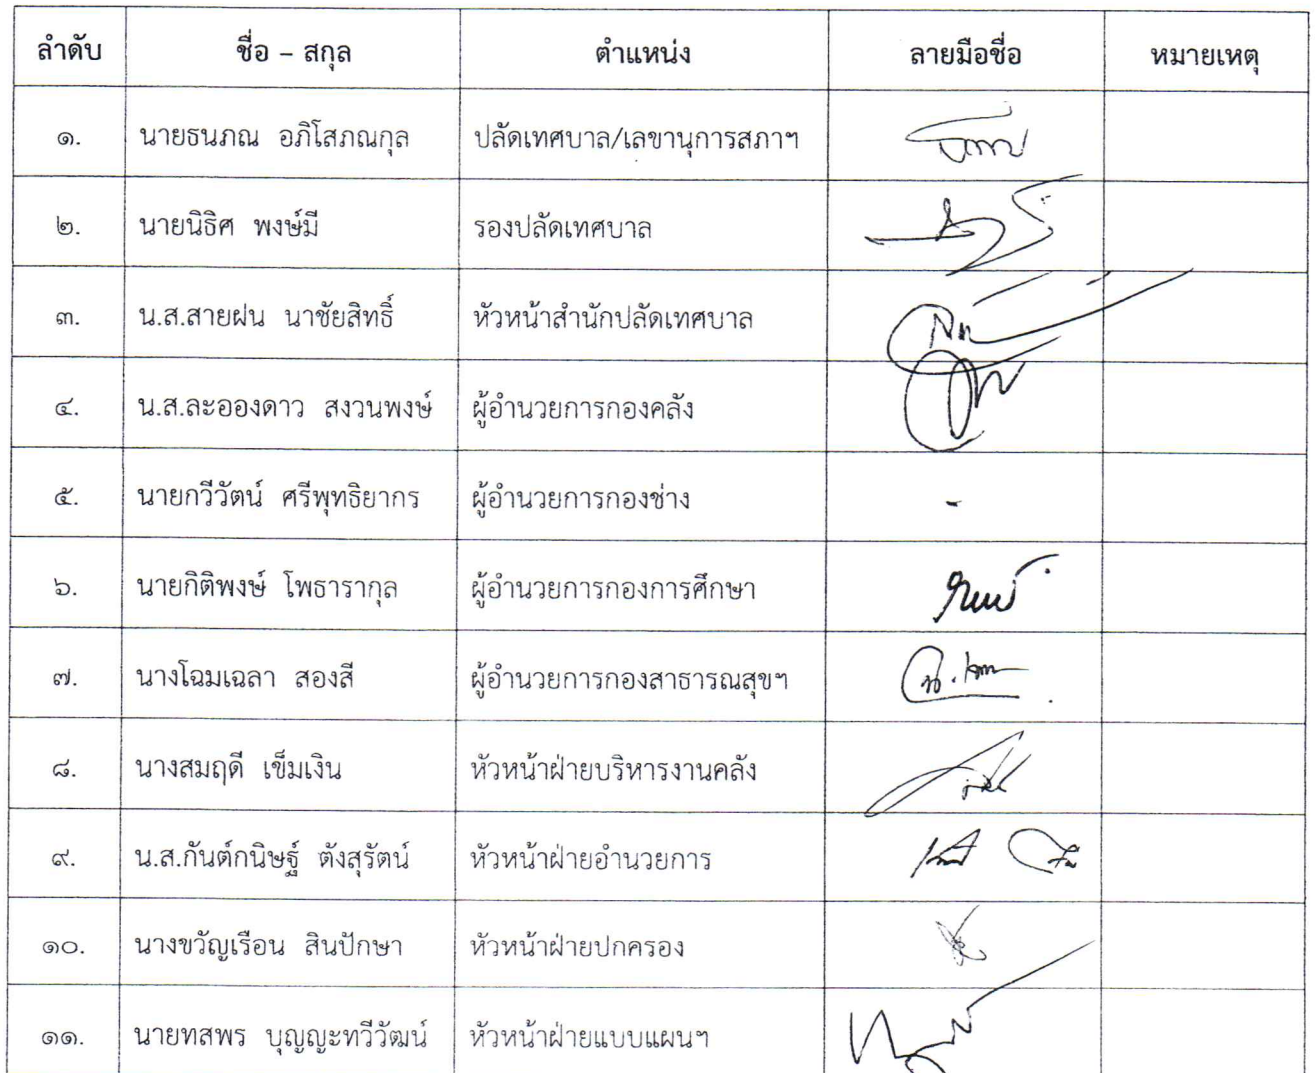 ลำดับ ชื่อ – สกุล ตำแหน่ง ลายมือชื่อ หมายเหตุ
๑. นายธนภณ อภิโสภณกุล ปลัดเทศบาล/เลขานุการสภาฯ
๒. นายนิธิศ พงษ์มี รองปลัดเทศบาล
๓. น.ส.สายฝน นาชัยสิทธิ์ หัวหน้าสำนักปลัดเทศบาล
๔. น.ส.ละอองดาว สงวนพงษ์ ผู้อำนวยการกองคลัง
๕. นายกวีวัตน์ ศรีพุทธิยากร ผู้อำนวยการกองช่าง -
๖. นายกิติพงษ์ โพธารากุล ผู้อำนวยการกองการศึกษา
๗. นางโฉมเฉลา สองสี ผู้อำนวยการกองสาธารณสุขฯ
๘. นางสมฤดี เข็มเงิน หัวหน้าฝ่ายบริหารงานคลัง
๙. น.ส.กันต์กนิษฐ์ ตังสุรัตน์ หัวหน้าฝ่ายอำนวยการ
๑๐. นางขวัญเรือน สินปักษา หัวหน้าฝ่ายปกครอง
๑๑. นายทสพร บุญญะทวีวัฒน์ หัวหน้าฝ่ายแบบแผนฯ